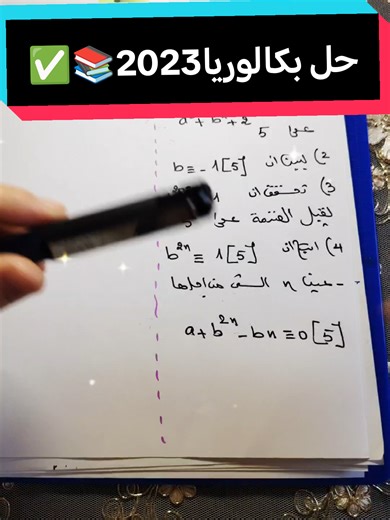 حل بكالوريا2023📚✅
a + b + 2
على 5
2) بين أن b ≡ -1[5]
3) تحقق أن
تقبل القسمة على
4) استنتج أن b²ⁿ ≡ 1[5]
- عين n التي من أجلها
a + b²ⁿ - bn ≡ 0[5]